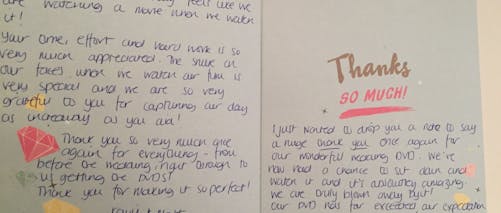 are watching a movie when we watch
it!
Your time, effort and hard work is so
very much appreciated. The smile on
our faces when we watch our film is
very special and we are so very
grateful to you for capturing our day
as incredibly as you did!
Thank you so very much once
again for everything - from
before the wedding, right through to
us getting the DVDs!
Thank you for making it so perfect!
Thanks
SO MUCH!
I just wanted to drop you a note to say
a huge thank you once again for
our wonderful wedding DVD. We've
now had a chance to sit down and
watch it and it's absolutely amazing.
We are truly blown away by it!
Our DVD has far exceeded our expectation